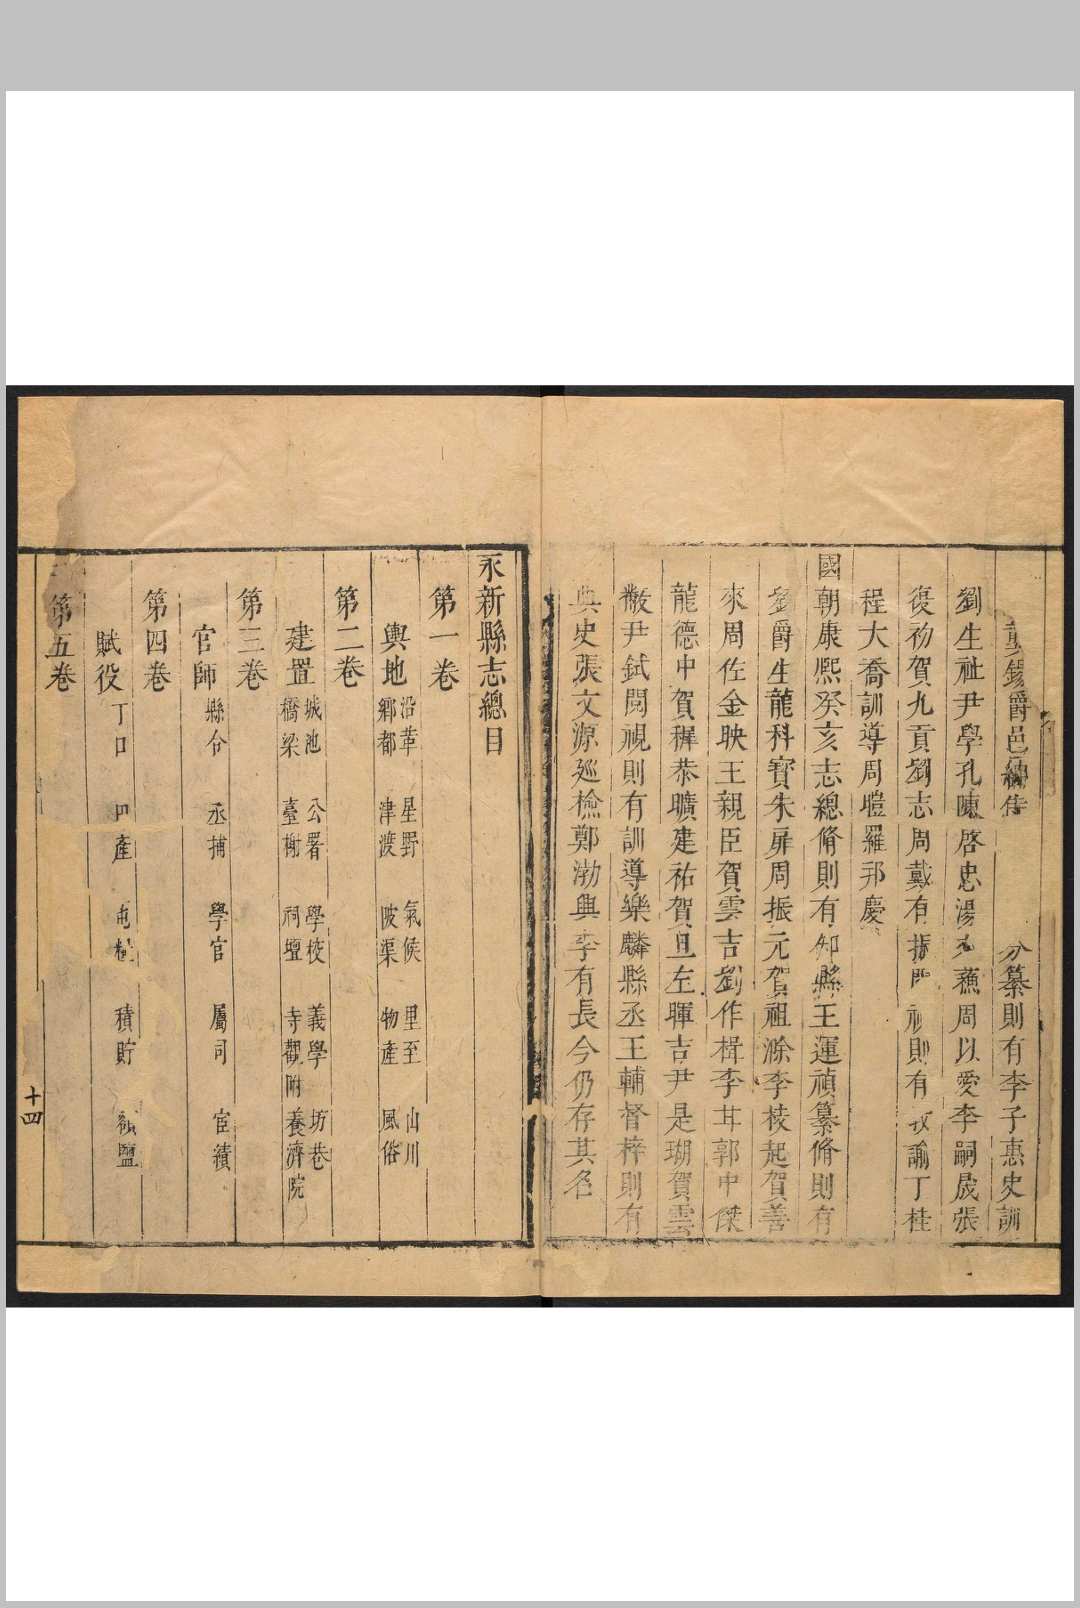 錫爵邑 分纂則有李子惠史訓
劉生祉尹學孔陳啓忠湯 蘓周以愛李嗣晟張
復初賀九貢劉志周戴有振 則有 諭丁桂
程大喬訓導周暟羅邦慶
國朝康熙癸亥志總脩則有知縣王運禎纂脩則有
劉爵生龍科寶朱扉周振元賀祖滁李棱起賀善
來周佐金映王親臣賀雲吉劉作楫李廾郭中傑
龍德中賀穉恭曠建祐賀旦左暉吉尹是瑚賀雲
黻尹鉽閱視則有訓導樂麟縣丞王輔督梓則有
典史張文源廵檢鄭渤興李有長今仍存其名
永新縣志總目
第一卷
輿地 沿革 星野 氣候 里至 山川
鄉都 津渡 陂渠 物產 風俗
第二卷
建置 城池 公署 學校 義學 坊巷
橋梁 臺榭 祠壇 寺觀附 養濟院
第三卷
官師 縣令 丞捕 學官 屬司 宦績
第四卷
賦役 丁口 田產 屯糧 積貯 蠲鹽
第五卷
十四